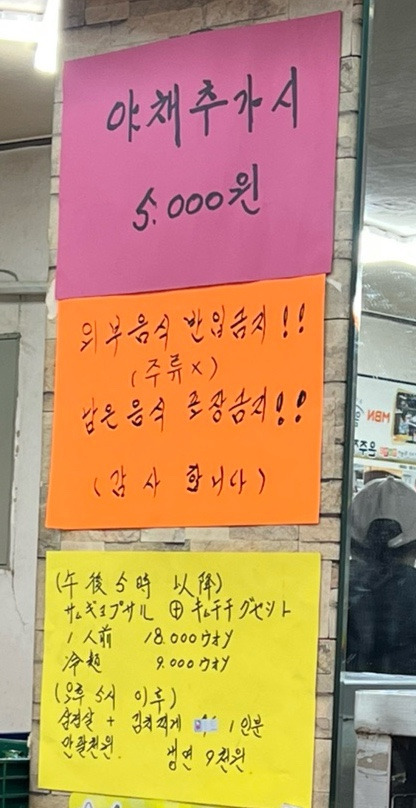 야채추가시
5.000원
외부음식 반입금지!!
(주류×)
남은음식 포장금지!!
(감사합니다)
(午後5時 以降)
サムギョプサル ⊞ キムチチグセット
1人前 18.000ウォン
冷麺 9.000ウォン
(오후 5시 이후)
삼겹살 + 김치찌게 1인분
만팔천원 냉면 9천원
MBN